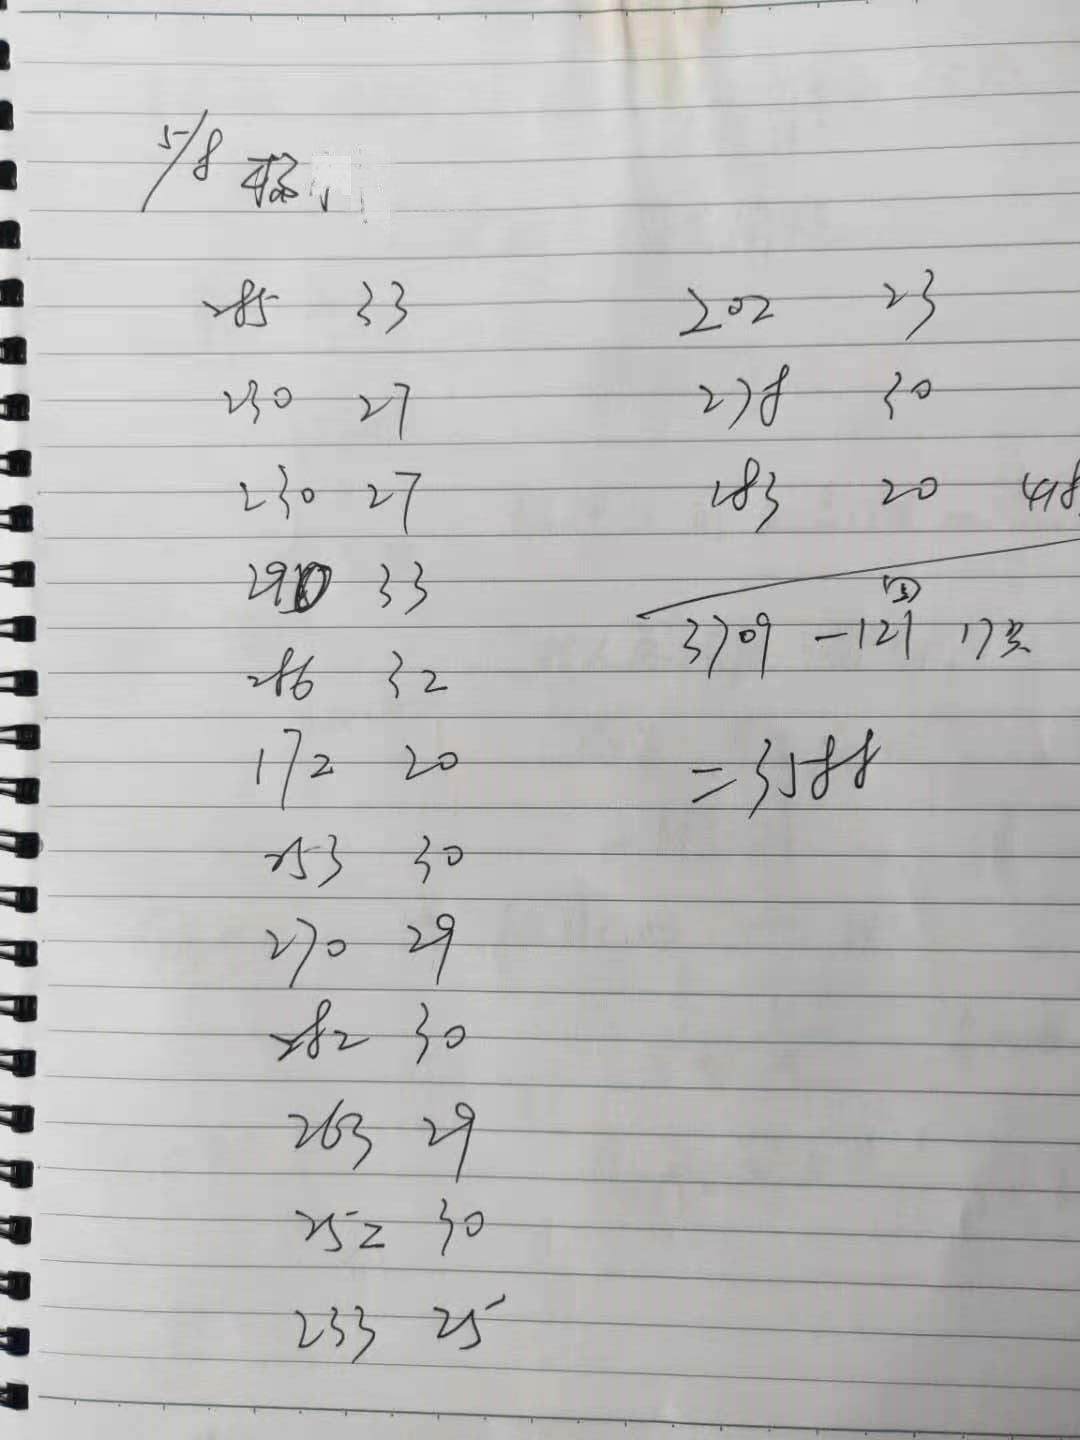 5/8
285 33
230 27
230 27
290 33
286 32
172 20
253 30
270 29
282 30
263 29
252 30
233 25
202 23
278 30
183 20 418
3709 -121 17
=3588